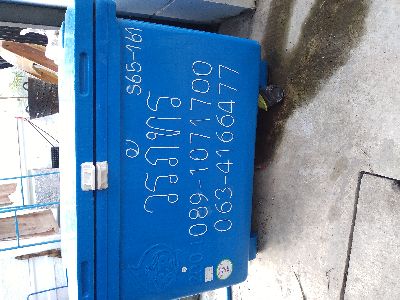 S65-161
วรภัทร
089-1071700
063-4166477